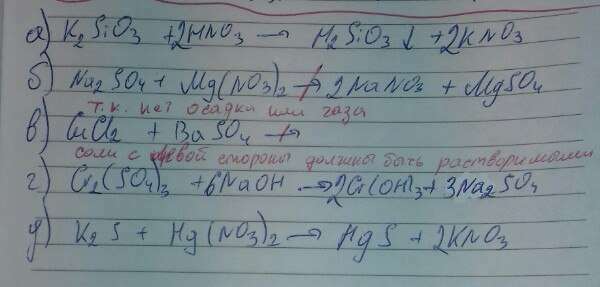 а) K2SiO3 + 2HNO3 → H2SiO3 ↓ + 2KNO3
б) Na2SO4 + Mg(NO3)2 ↛ 2NaNO3 + MgSO4
т.к. нет осадка или газа
в) CuCl2 + BaSO4 ↛
соли с левой стороны должны быть растворимыми
г) Cr2(SO4)3 + 6NaOH → 2Cr(OH)3 + 3Na2SO4
д) K2S + Hg(NO3)2 → HgS + 2KNO3